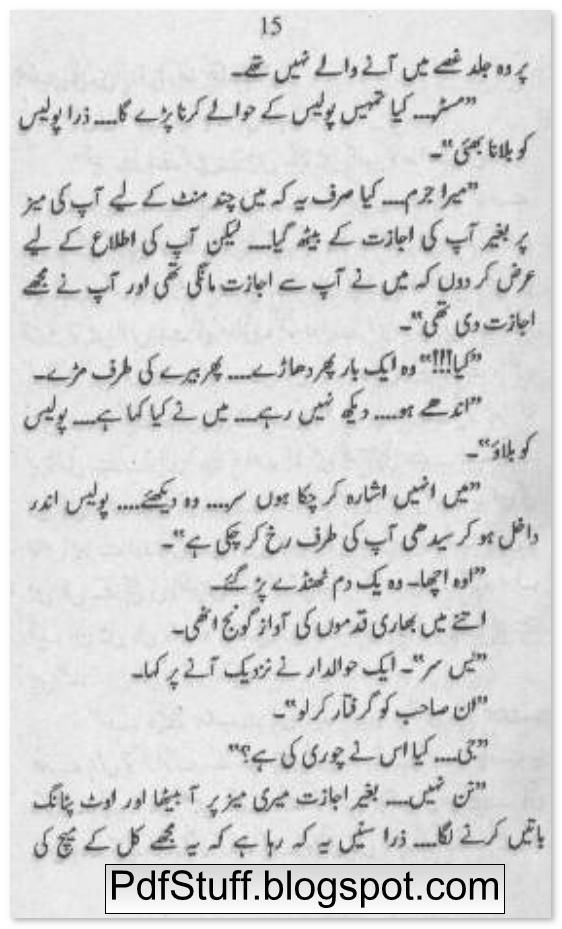 15
پر وہ جلد غصے میں آنے والے نہیں تھے۔
”مسٹر.... کیا تمہیں پولیس کے حوالے کرنا پڑے گا.... ذرا پولیس
کو بلانا بھئی“۔
”میرا جرم.... کیا صرف یہ کہ میں چند منٹ کے لیے آپ کی میز
پر بغیر آپ کی اجازت کے بیٹھ گیا.... لیکن آپ کی اطلاع کے لیے
عرض کر دوں کہ میں نے آپ سے اجازت مانگی تھی اور آپ نے مجھے
اجازت دی تھی“۔
”کیا!!!“ وہ ایک بار پھر دھاڑے.... پھر بیرے کی طرف مڑے۔
”اندھے ہو.... دیکھ نہیں رہے.... میں نے کیا کہا ہے.... پولیس
کو بلاؤ“۔
”میں انہیں اشارہ کر چکا ہوں سر.... وہ دیکھئے.... پولیس اندر
داخل ہو کر سیدھی آپ کی طرف رخ کر چکی ہے“۔
”اوہ اچھا۔ وہ یک دم ٹھنڈے پڑ گئے۔
اتنے میں بھاری قدموں کی آواز گونج اٹھی۔
”یس سر“۔ ایک حوالدار نے نزدیک آنے پر کہا۔
”ان صاحب کو گرفتار کر لو“۔
”جی.... کیا اس نے چوری کی ہے؟“
”تن نہیں.... بغیر اجازت میری میز پر آ بیٹھا اور اوٹ پٹانگ
باتیں کرنے لگا.... ذرا سنیں یہ کہ رہا ہے کہ یہ مجھے کل کے میچ کی
PdfStuff.blogspot.com